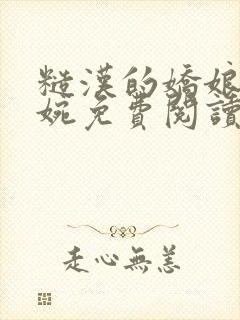 糙漢的嬌娘
婉免費閱讀
走心無恙